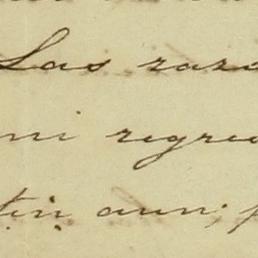 Las razo
mi regre
tin aun; p